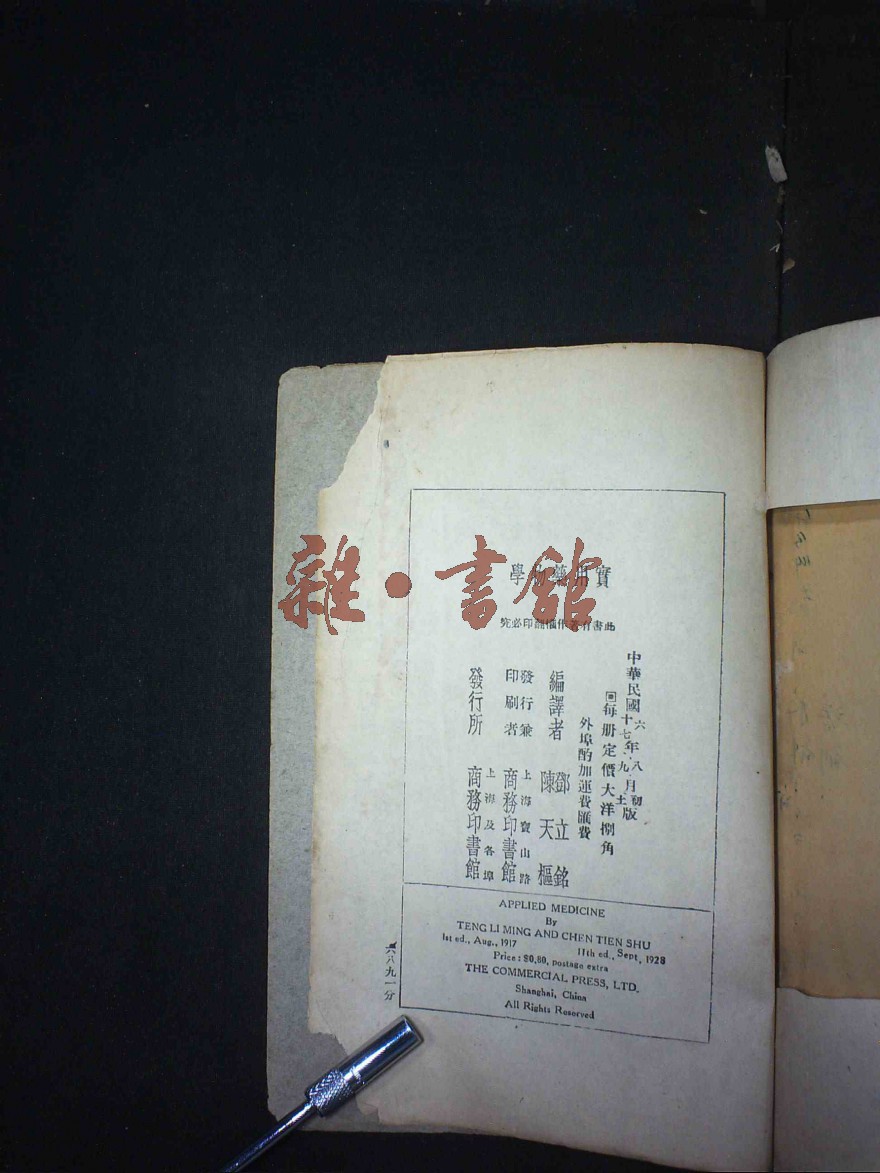 雜·書館
實用藥物學
此書有著作權翻印必究
中華民國
六年八月初版
十七年九月十一版
每册定價大洋捌角
外埠酌加運費匯費
編譯者 鄧立銘 陳天樞
發行兼印刷者 上海寶山路 商務印書館
發行所 上海及各埠 商務印書館
APPLIED MEDICINE
By
TENG LI MING AND CHEN TIEN SHU
1st ed., Aug., 1917 11th ed., Sept, 1928
Price: $0,80, postage extra
THE COMMERCIAL PRESS, LTD.
Shanghai, China
All Rights Reserved
六八九一分